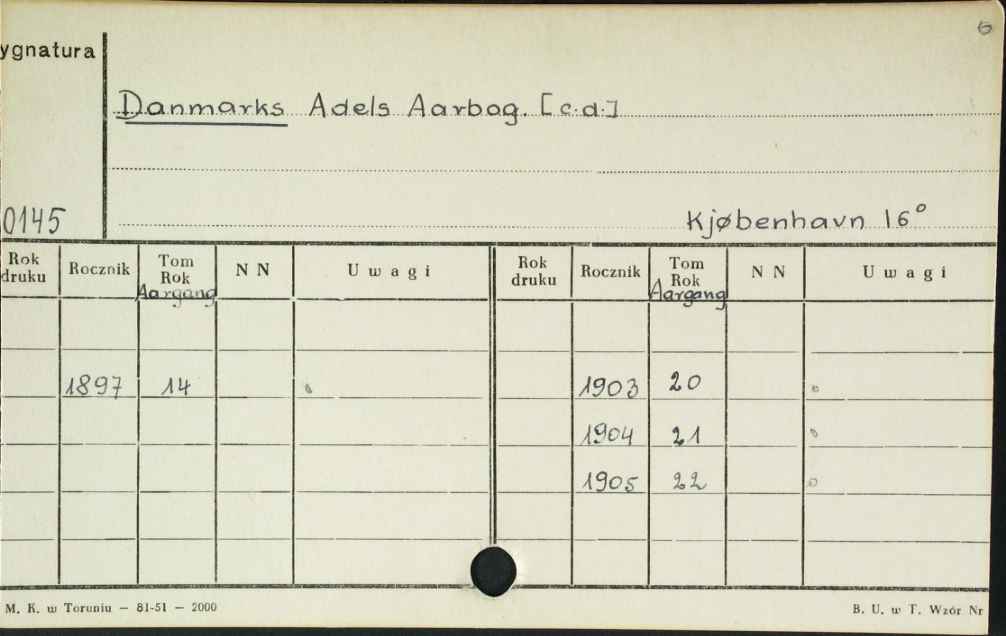 6
ygnatura
Danmarks Adels Aarbog. [c.d.]
0145
Kjøbenhavn 16°
Rok druku Rocznik Tom Rok Aargang N N Uwagi Rok druku Rocznik Tom Rok Aargang N N Uwagi
1897 14 1903 20
1904 21
1905 22
M. K. w Toruniu — 81-51 — 2000 B. U. w T. Wzór Nr